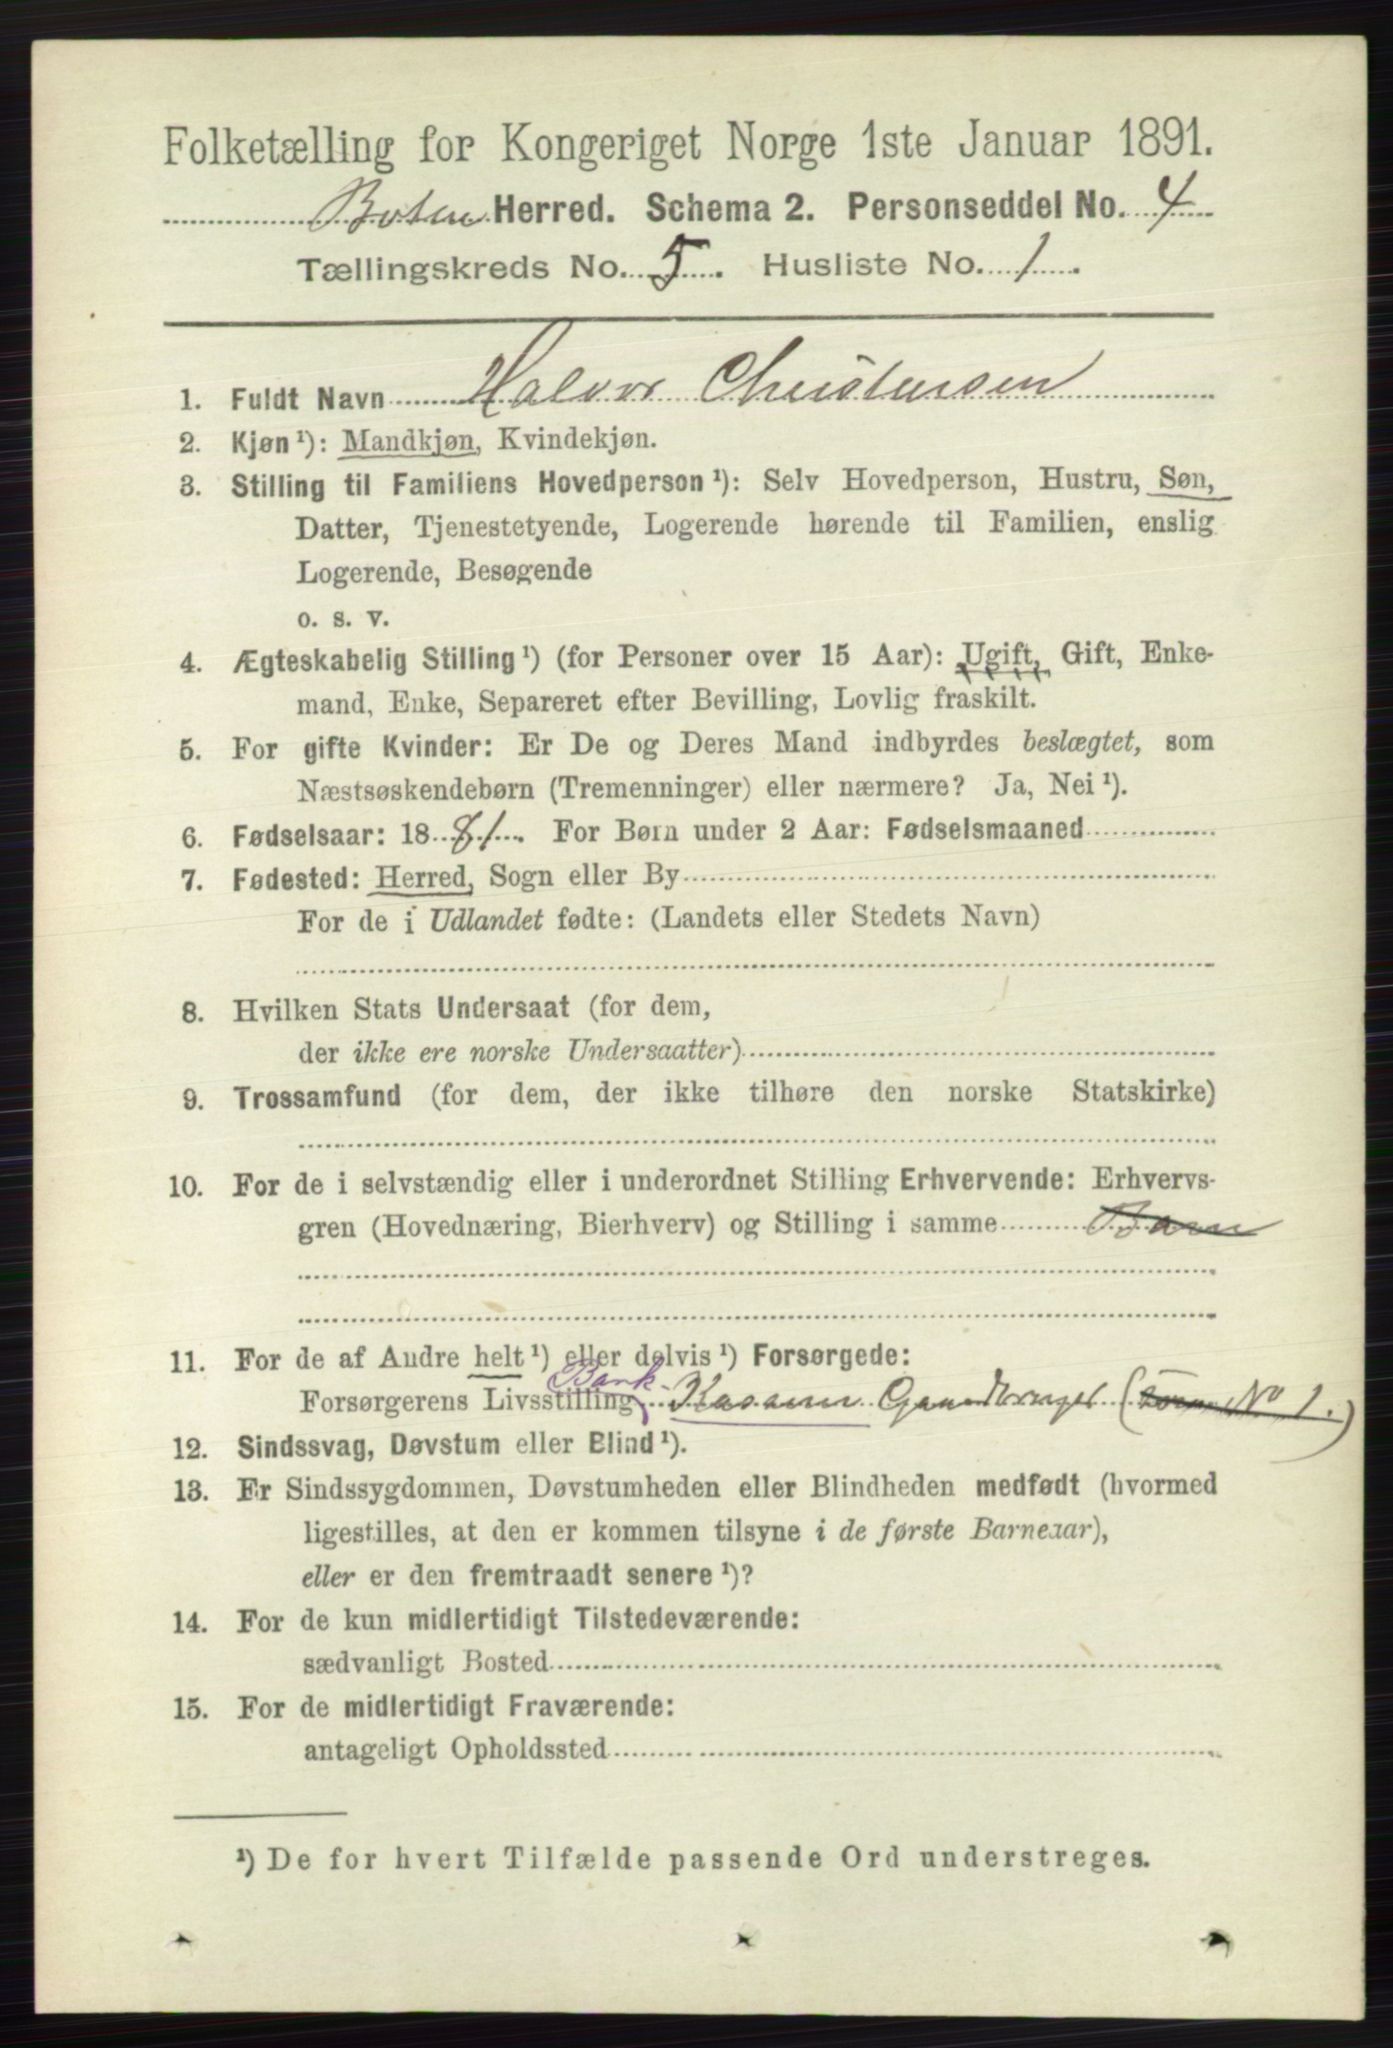 Folketælling for Kongeriget Norge 1ste Januar 1891.
Herred. Schema 2. Personseddel No. 4
Tællingskreds No. 5. Husliste No. 1
1. Fuldt Navn Halvor Christensen
2. Kjøn ¹): Mandkjøn, Kvindekjøn.
3. Stilling til Familiens Hovedperson ¹): Selv Hovedperson, Hustru, Søn,
Datter, Tjenestetyende, Logerende hørende til Familien, enslig
Logerende, Besøgende
o. s. v.
4. Ægteskabelig Stilling ¹) (for Personer over 15 Aar): Ugift, Gift, Enke-
mand, Enke, Separeret efter Bevilling, Lovlig fraskilt.
5. For gifte Kvinder: Er De og Deres Mand indbyrdes beslægtet, som
Næstsøskendebørn (Tremenninger) eller nærmere? Ja, Nei ¹).
6. Fødselsaar: 1881. For Børn under 2 Aar: Fødselsmaaned
7. Fødested: Herred, Sogn eller By
For de i Udlandet fødte: (Landets eller Stedets Navn)
8. Hvilken Stats Undersaat (for dem,
der ikke ere norske Undersaatter)
9. Trossamfund (for dem, der ikke tilhøre den norske Statskirke)
10. For de i selvstændig eller i underordnet Stilling Erhvervende: Erhvervs-
gren (Hovednæring, Bierhverv) og Stilling i samme Barn
11. For de af Andre helt ¹) eller delvis ¹) Forsørgede:
Bank
Forsørgerens Livsstilling Gaardbruger No 1.)
12. Sindssvag, Døvstum eller Blind ¹).
13. Er Sindssygdommen, Døvstumheden eller Blindheden medfødt (hvormed
ligestilles, at den er kommen tilsyne i de første Barneaar),
eller er den fremtraadt senere ¹)?
14. For de kun midlertidigt Tilstedeværende:
sædvanligt Bosted
15. For de midlertidigt Fraværende:
antageligt Opholdssted
¹) De for hvert Tilfælde passende Ord understreges.